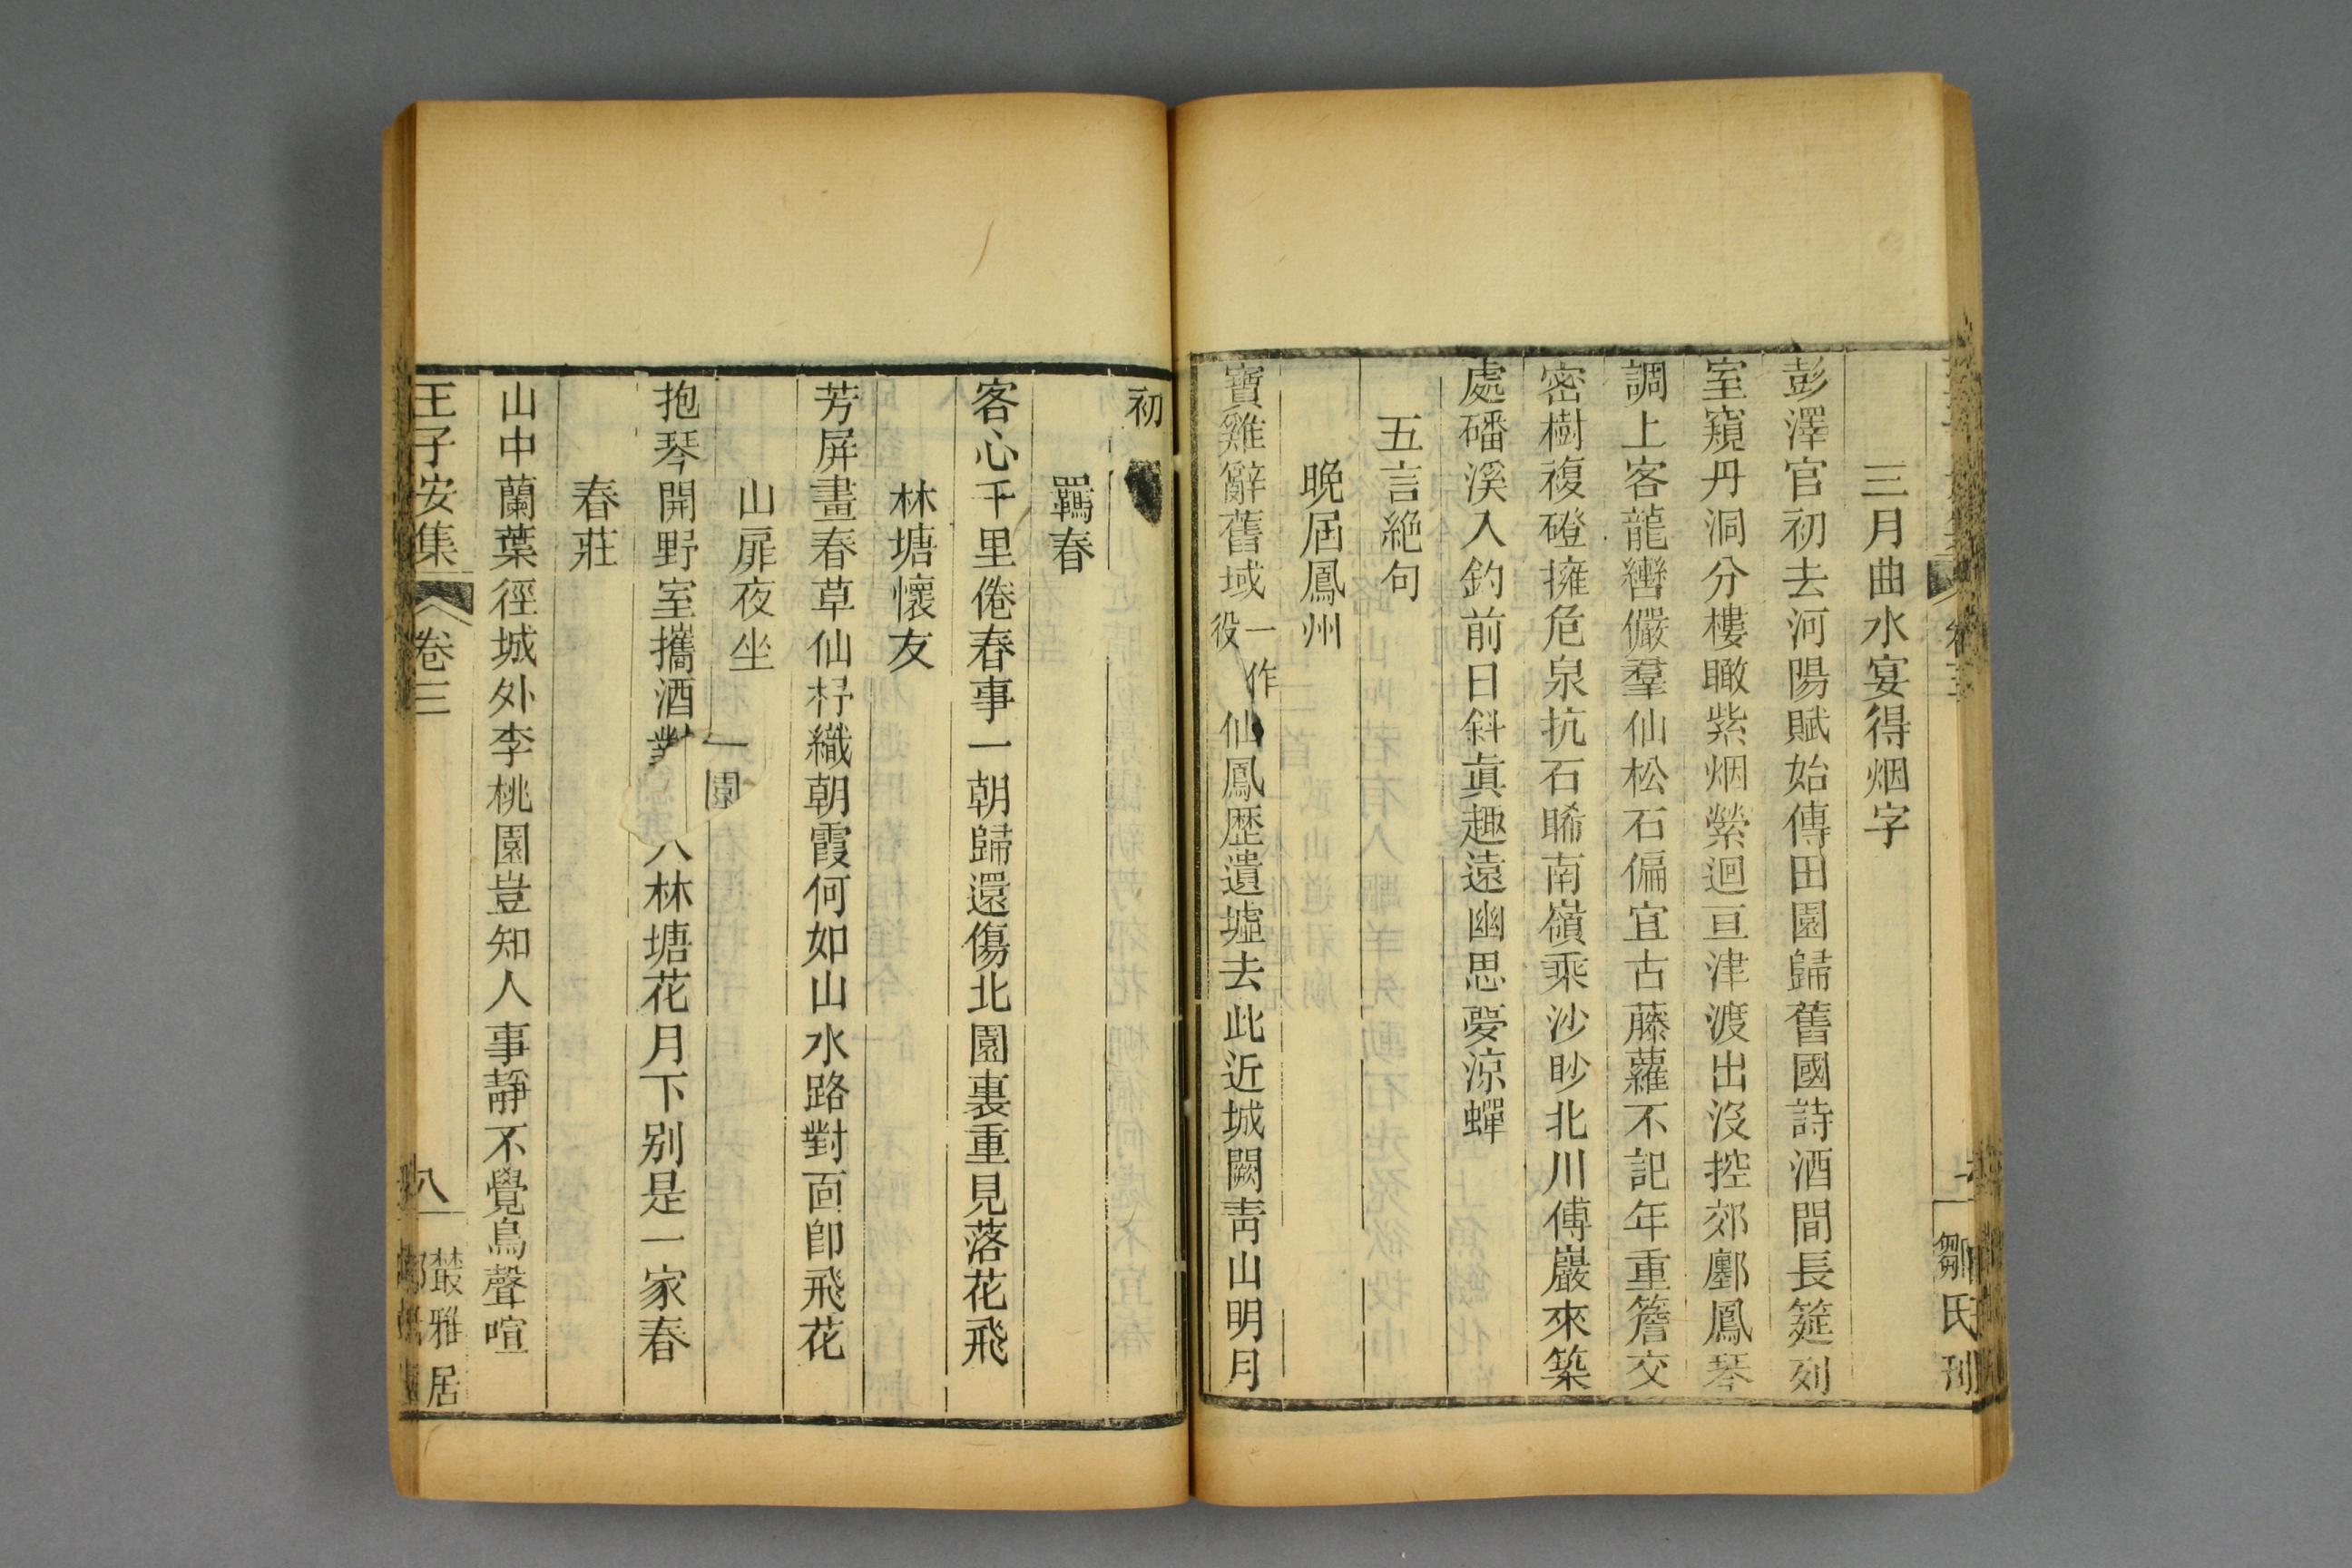 三月曲水宴得烟字
彭澤官初去河陽賦始傳田園歸舊國詩酒間長筵列
室窺丹洞分樓瞰紫烟縈迴亘津渡出沒控郊鄽鳳琴
調上客龍轡儼羣仙松石偏宜古藤蘿不記年重簷交
密樹複磴擁危泉抗石睎南嶺乘沙眇北川傅巖來築
處磻溪入釣前日斜眞趣遠幽思夢涼蟬
五言絶句
晚屆鳳州
寶雞辭舊域一作役仙鳳歴遺墟去此近城闕青山明月
初
羈春
客心千里倦春事一朝歸還傷北園裏重見落花飛
林塘懷友
芳屏畫春草仙杼織朝霞何如山水路對面卽飛花
山扉夜坐一園
抱琴開野室攜酒對林塘花月下别是一家春
春莊
山中蘭葉徑城外李桃園豈知人事靜不覺鳥聲喧
王子安集 卷三 八 叢雅居
鄒氏刊